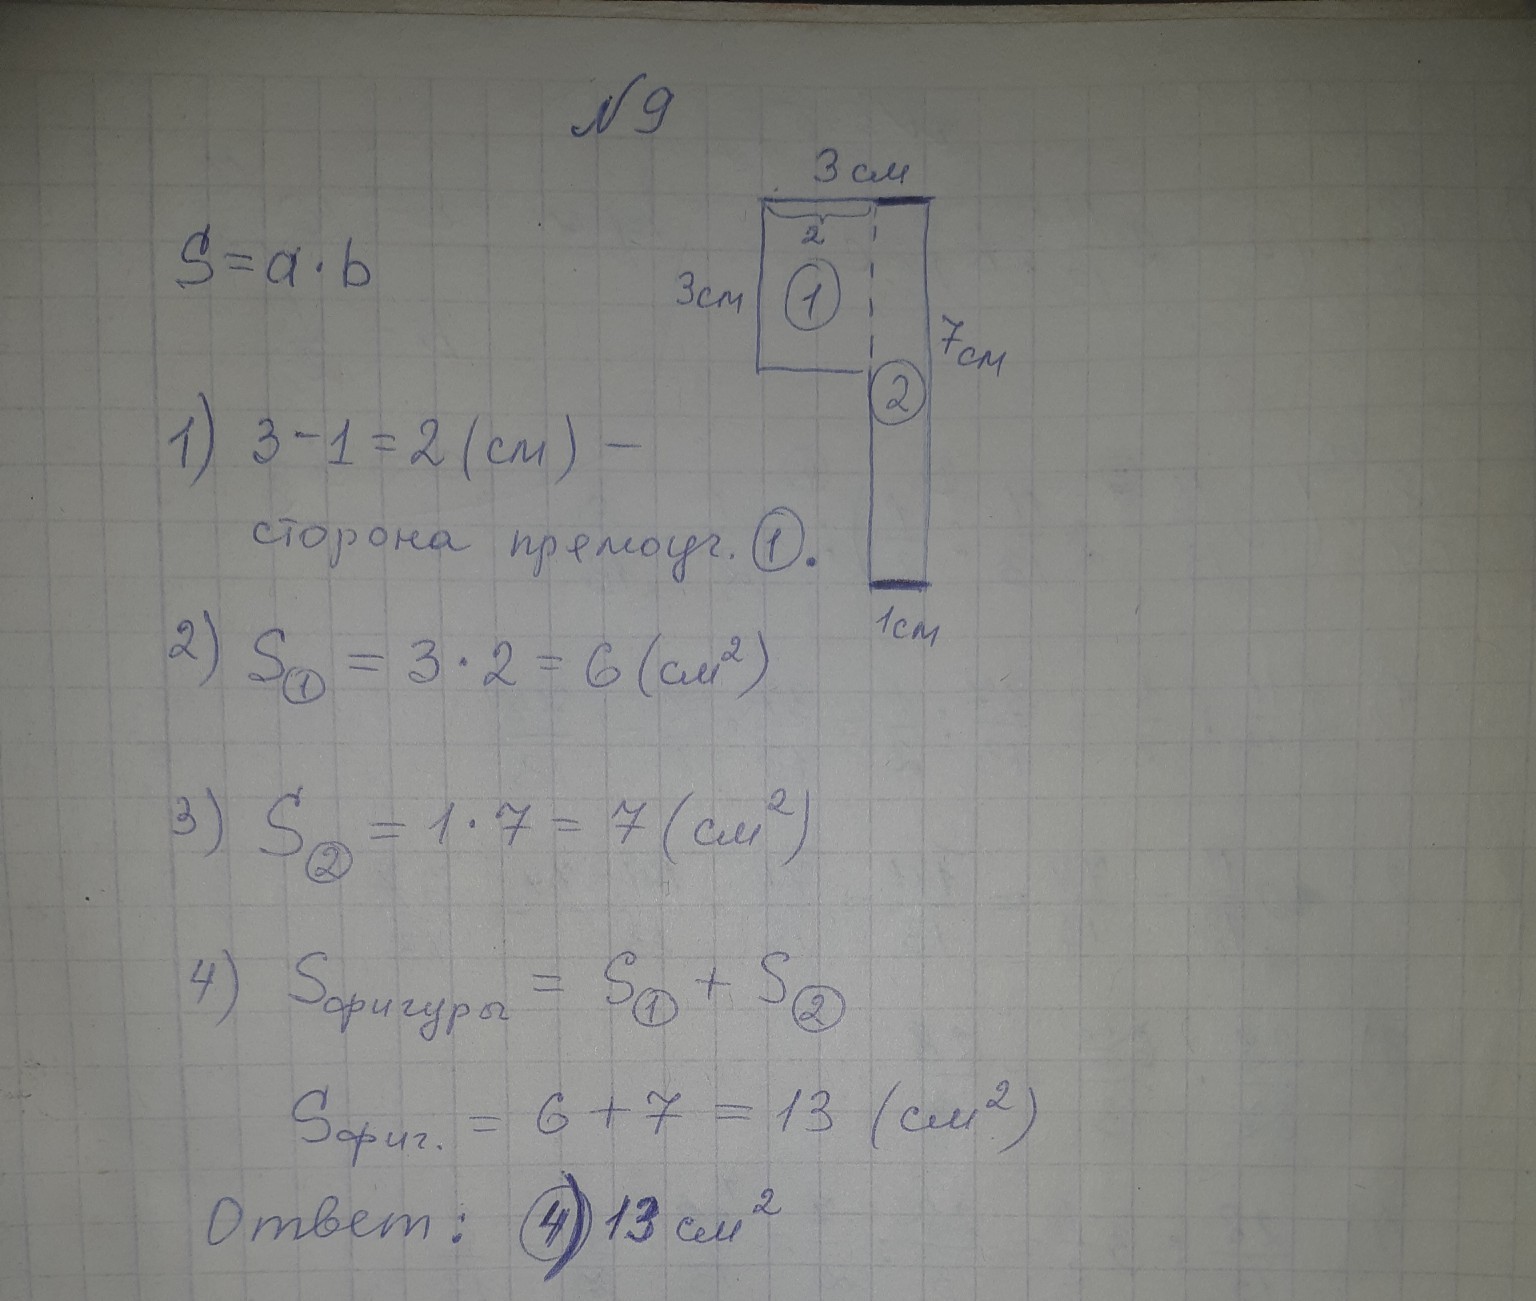 N 9
3 см
2
S = a · b
3см
1
7см
2
1) 3 - 1 = 2 (см) -
сторона прямоуг. 1.
1см
2) S1 = 3 · 2 = 6 (см²)
3) S2 = 1 · 7 = 7 (см²)
4) Sфигуры = S1 + S2
Sфиг. = 6 + 7 = 13 (см²)
Ответ: 4) 13 см²